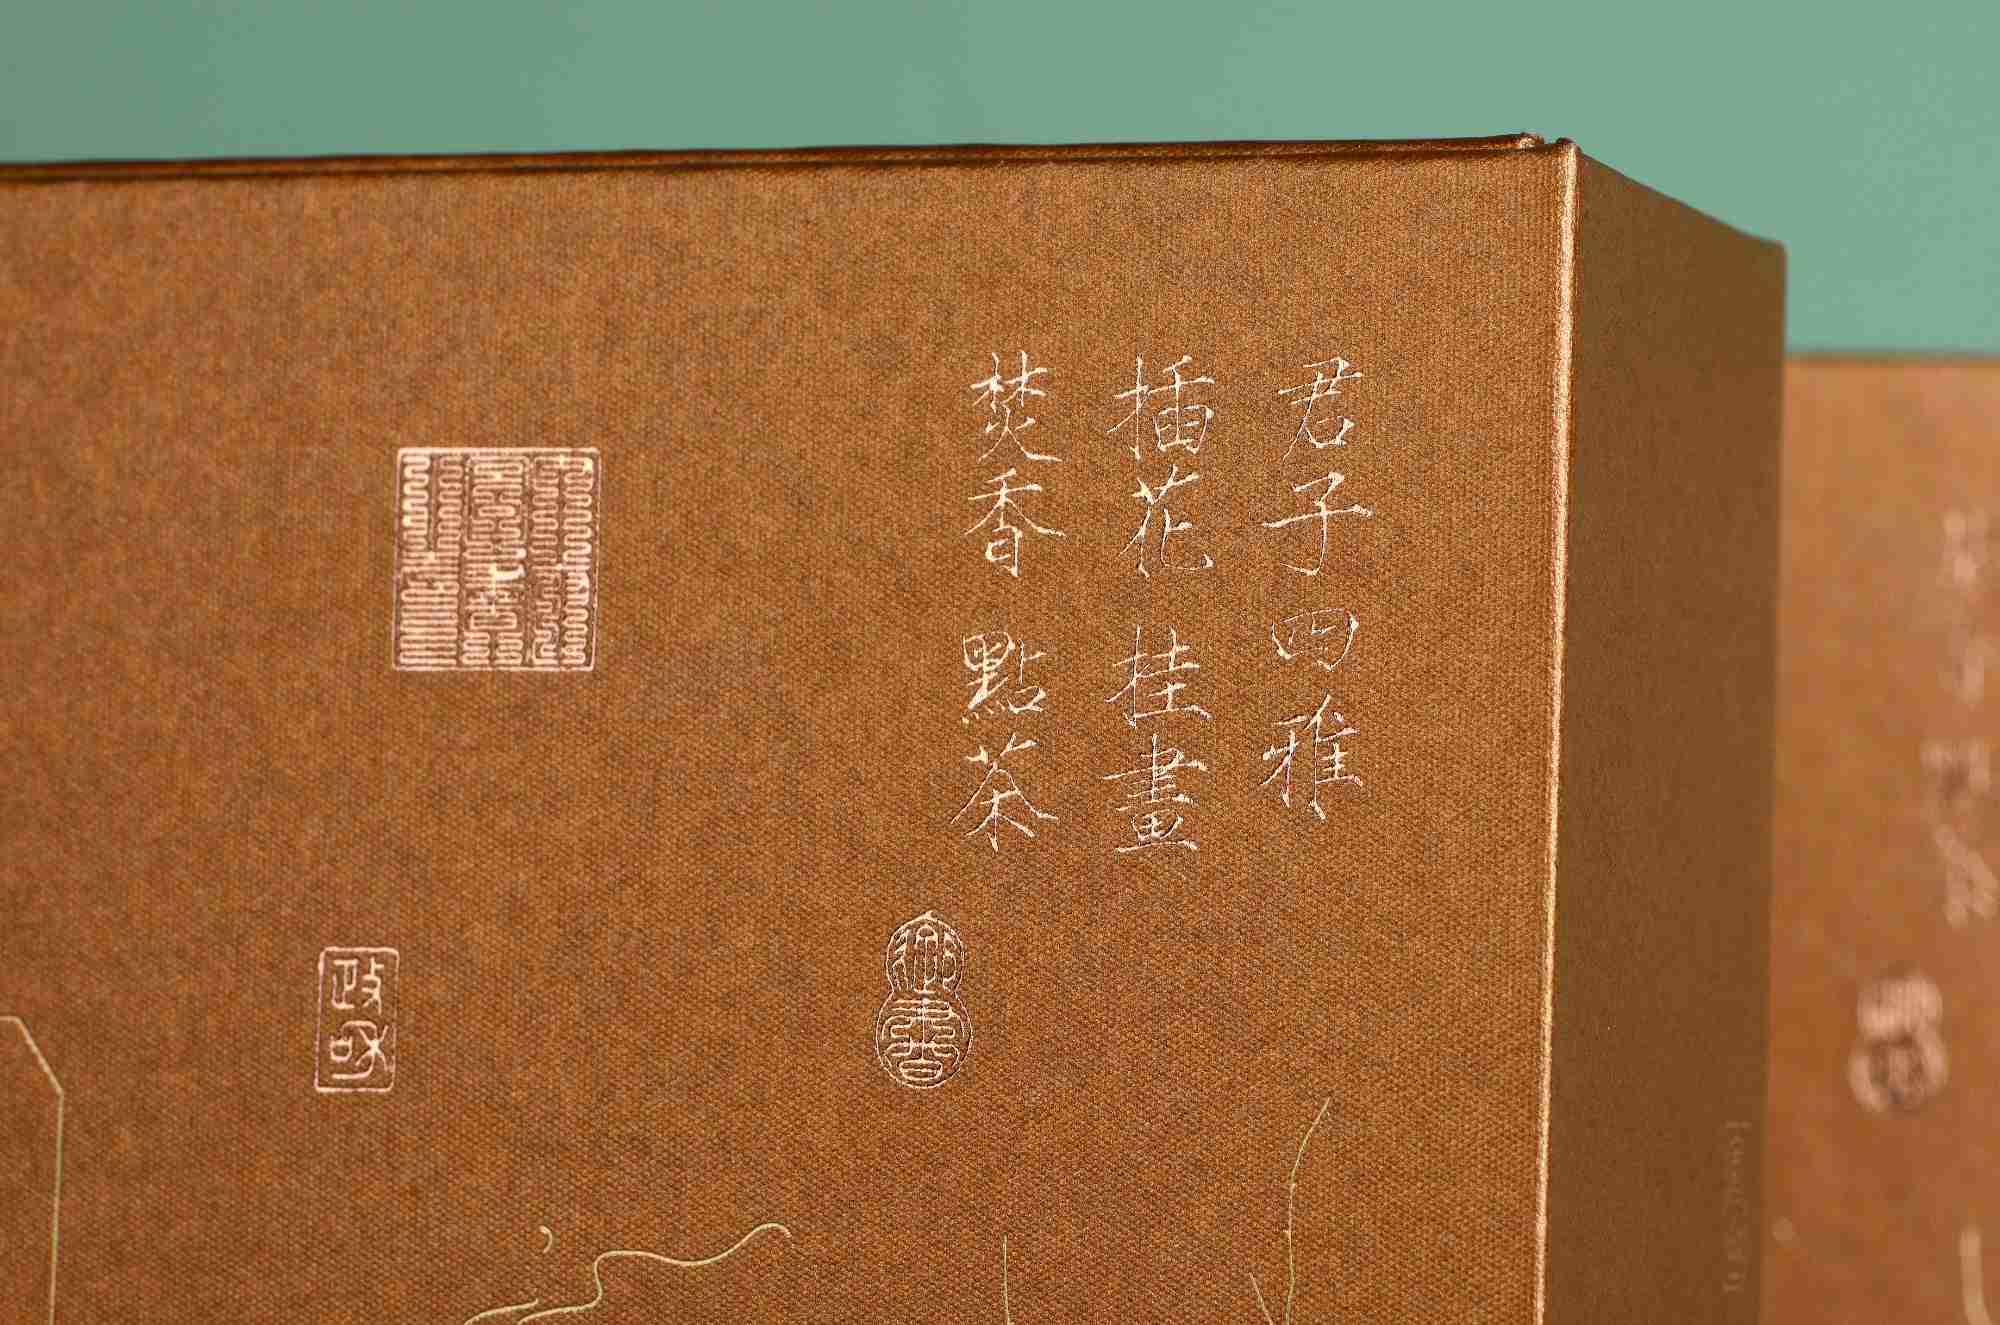 君子四雅
插花 桂畫
焚香 點茶
政和